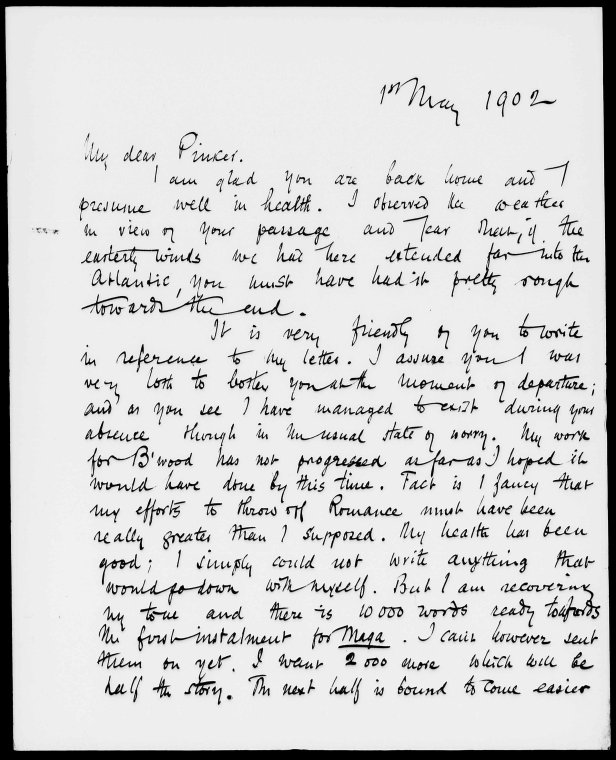 1st May 1902
My dear Pinker.
I am glad you are back home and I
presume well in health. I observed the weather
in view of your passage and fear that, if the
easterly winds we had here extended far into the
Atlantic, you must have had it pretty rough
towards the end.
It is very friendly of you to write
in reference to my letter. I assure you I was
very loth to bother you at the moment of departure;
and as you see I have managed to exist during your
absence though in the usual state of worry. My work
for B'wood has not progressed as far as I hoped it
would have done by this time. Fact is I fancy that
my efforts to throw off Romance must have been
really greater than I supposed. My health has been
good; I simply could not write anything that
would go down with myself. But I am recovering
my tone and there is 10000 words ready towards
the first instalment for Maga. I can't however sent
them on yet. I want 2000 more which will be
half the story. The next half is bound to come easier